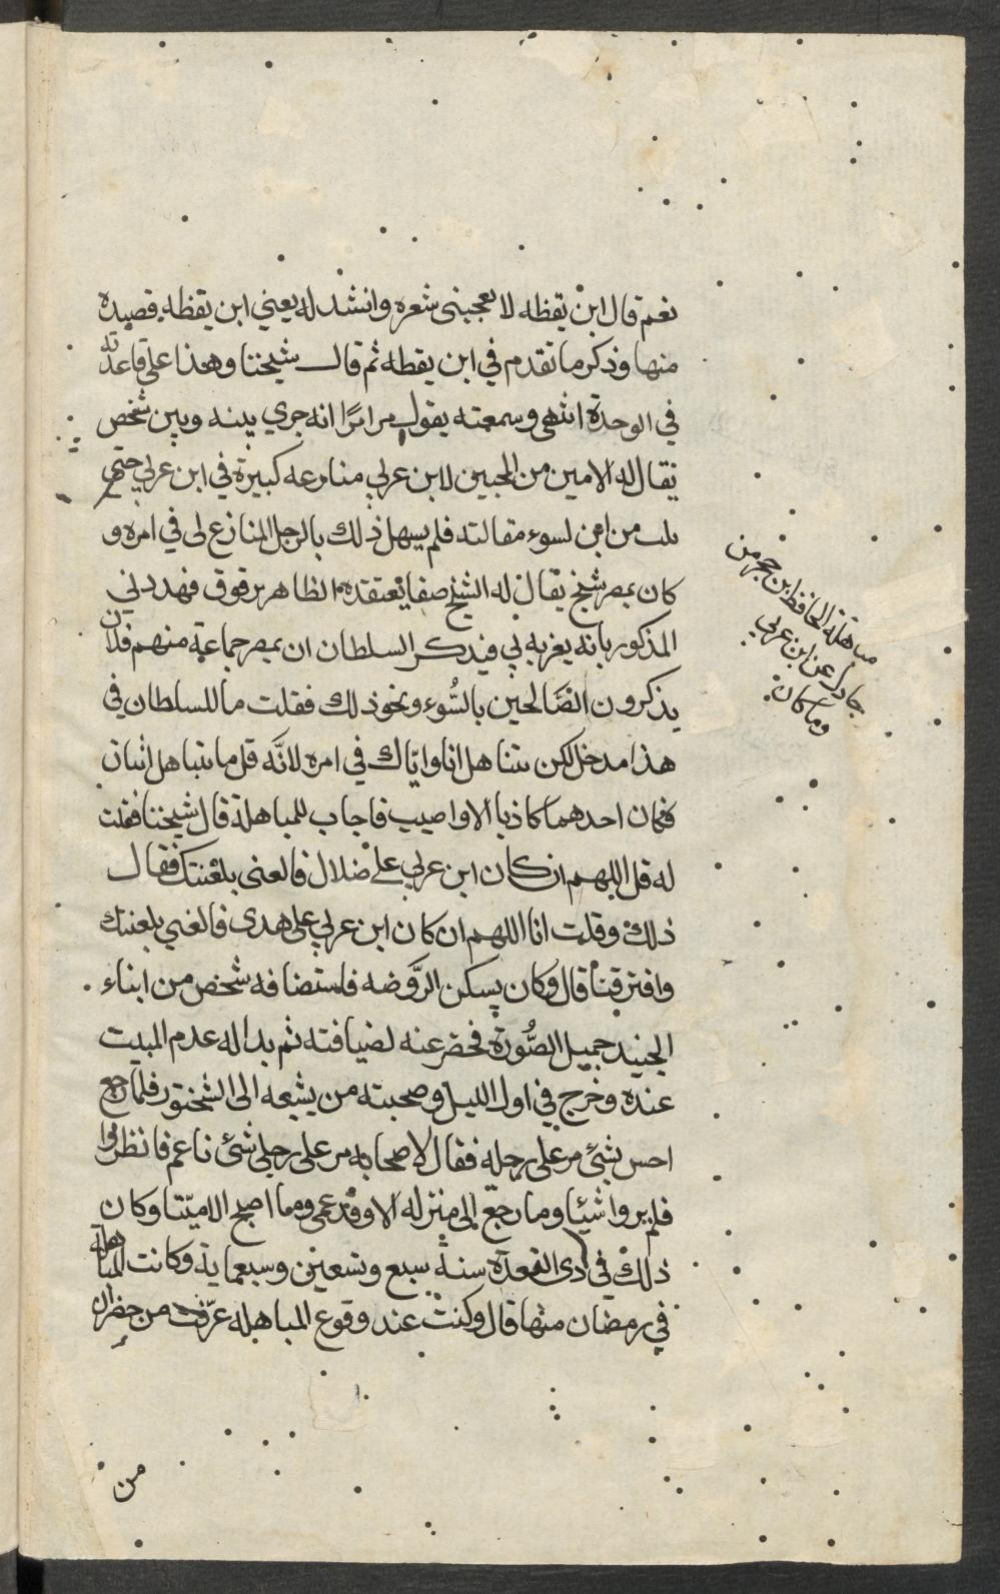 نعم قال ابن يقظه لا يعجبنى شعره وانشد له يعني ابن يقظه قصيدة
منها وذكر ما تقدم في ابن يقظه ثم قال شيخنا وهذا على قاعدته
في الوحدة انتهى وسمعته يقول مرارًا انه جري بينه وبين شخص
يقال له الامين من المحبين لابن عربي منازعه كبيرة في ابن عربي حتى
نلت من ابن لسوء مقالته فلم يسهل ذلك بالرجل المنازع لى في امره و
كان بمصر شيخ يقال له الشيخ صفا يعتقده الظاهر برقوق فهددني
المذكور بانه يغريه بي فيذكر السلطان ان بمصر جماعة منهم فلان
يذكرون الصَّالحين بالسُّوء ونحو ذلك فقلت ما للسلطان في
هذا مدخل لكن نتباهل انا واياك في امره لانَّه قل ما تباهل اثنان
فكان احدهما كاذبا الا واصيب فاجاب للمباهلة قال شيخنا فقلت
له قل اللهم ان كان ابن عربي على ضلال فالعنى بلعنتك فقال
ذلك وقلت انا اللهم ان كان ابن عربي على هدى فالعني بلعنتك
وافترقنا قال وكان يسكن الرَّوضه فاستضافه شخص من ابناء
الجند جميل الصُّورة فحضر عنه لضيافته ثم بدا له عدم المبيت
عنده وخرج في اول الليل وصحبته من يشيعه الى الشختور فلما رجع
احس بشئ مر على رجله فقال لاصحابه مر على رجلي شئ ناعم فانظروا
فلم يروا شيئا وما رجع الى منزله الا وقد عمى وما اصبح الا ميّتا وكان
ذلك في ذى القعدة سنة سبع وتسعين وسبعماية وكانت المباهلة
في رمضان منها قال وكنت عند وقوع المباهله عرّفت من حضر ان
من
مباهلة الحافظ ابن حجر من
جادل عن ابن عربي
وما كان